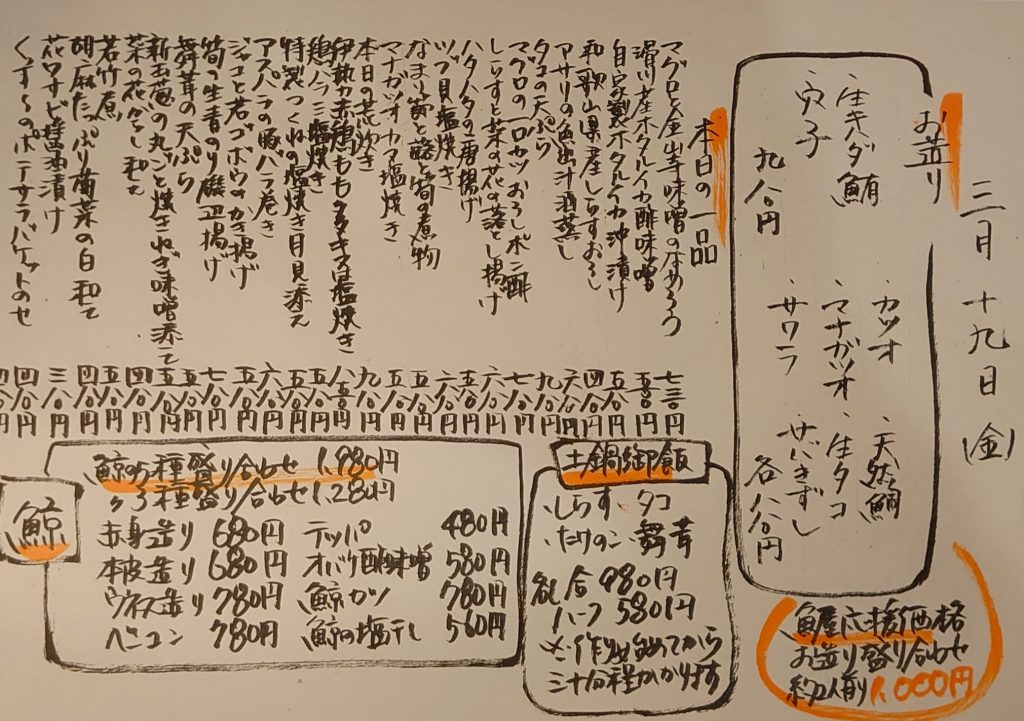 三月 十九日 (金)
お造り
カツオ ・天然鯛
・生キハダ鮪 ・マナガツオ ・生タコ
・穴子 ・サワラ ・さバきずし
九八〇円 各八八〇円
魚屋応援価格
お造り盛り合わせ
約2人前 1,000円
本日の一品
マグロと金山寺味噌のなめろう 七三〇円
滑川産ホタルイカ酢味噌 五八〇円
自家製ホタルイカ沖漬け 五八〇円
和歌山県産しらすおろし 四八〇円
アサリの魚出汁酒蒸し 六八〇円
タコの天ぷら 九八〇円
マグロの一口カツおろしポン酢 七八〇円
しらすと菜の花の落とし揚げ 六八〇円
ハタハタの唐揚げ 五八〇円
ツブ貝塩焼き 六八〇円
なまり節と蕗と筍の煮物 五八〇円
マナガツオカマ塩焼き 五八〇円
本日の荒炊き 九八〇円
伊勢赤鶏ももたたき又は塩焼き 八八〇円
鶏ハラミ塩焼き 五八〇円
特製つくねの塩焼き月見添え 五八〇円
アスパラの豚バラ巻き 六八〇円
ジャコと若ゴボウのかき揚げ 五八〇円
筍の生青のり磯辺揚げ 七八〇円
舞茸の天ぷら 五八〇円
新玉葱の丸ごと焼きねぎ味噌添え 五八〇円
菜の花からし和え 四八〇円
若竹煮 五八〇円
胡麻たっぷり菊菜の白和え 四八〇円
花ワサビ醤油漬け 三八〇円
くずし〜のポテサラバケットのせ 四八〇円
土鍋御飯
・しらす ・タコ
・たけのこ ・舞茸
各一合 980円
ハーフ 580円
※作り始めてから
三十分程かかります
鯨
鯨の5種盛り合わせ 1,980円
〃3種盛り合わせ 1,280円
赤身造り 680円 テッパ 480円
本皮造り 680円 オバケ酢味噌 580円
ウネス造り 780円 鯨カツ 780円
ベーコン 780円 鯨の塩干し 560円